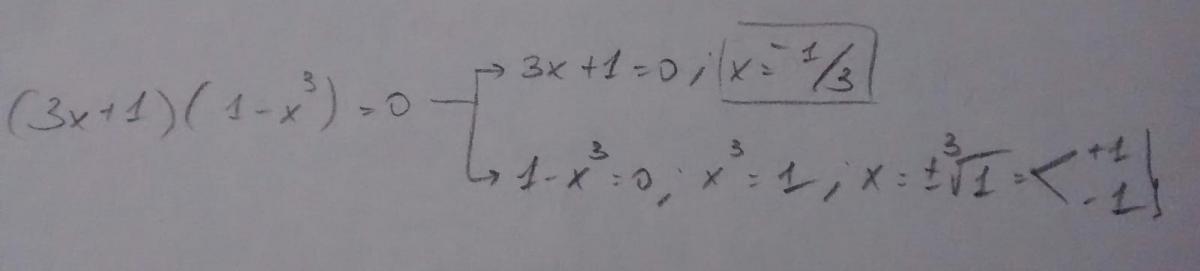 (3x+1)(1-x³)=0 → 3x+1=0; x=-1/3
→ 1-x³=0; x³=1; x=±³√1=< +1
-1